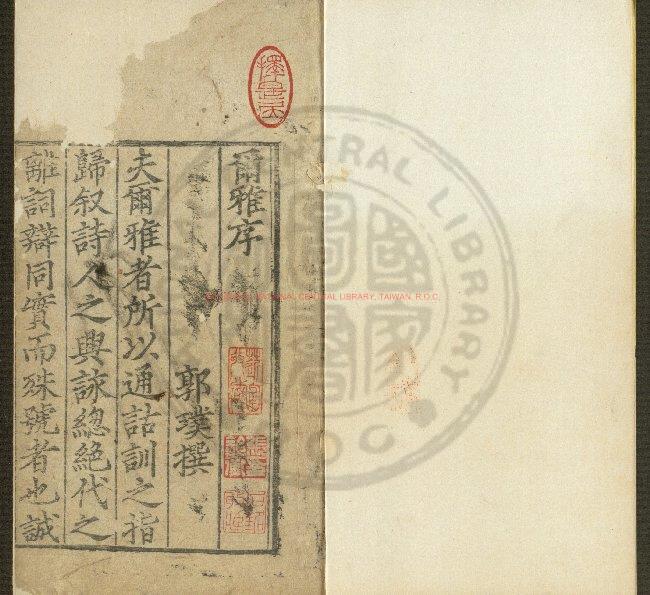 爾雅序
郭璞撰
夫爾雅者所以通詁訓之指
歸叙詩人之興詠緫絕代之
離詞辯同實而殊號者也誠
NATIONAL CENTRAL LIBRARY, TAIWAN, R.O.C.
CENTRAL LIBRARY